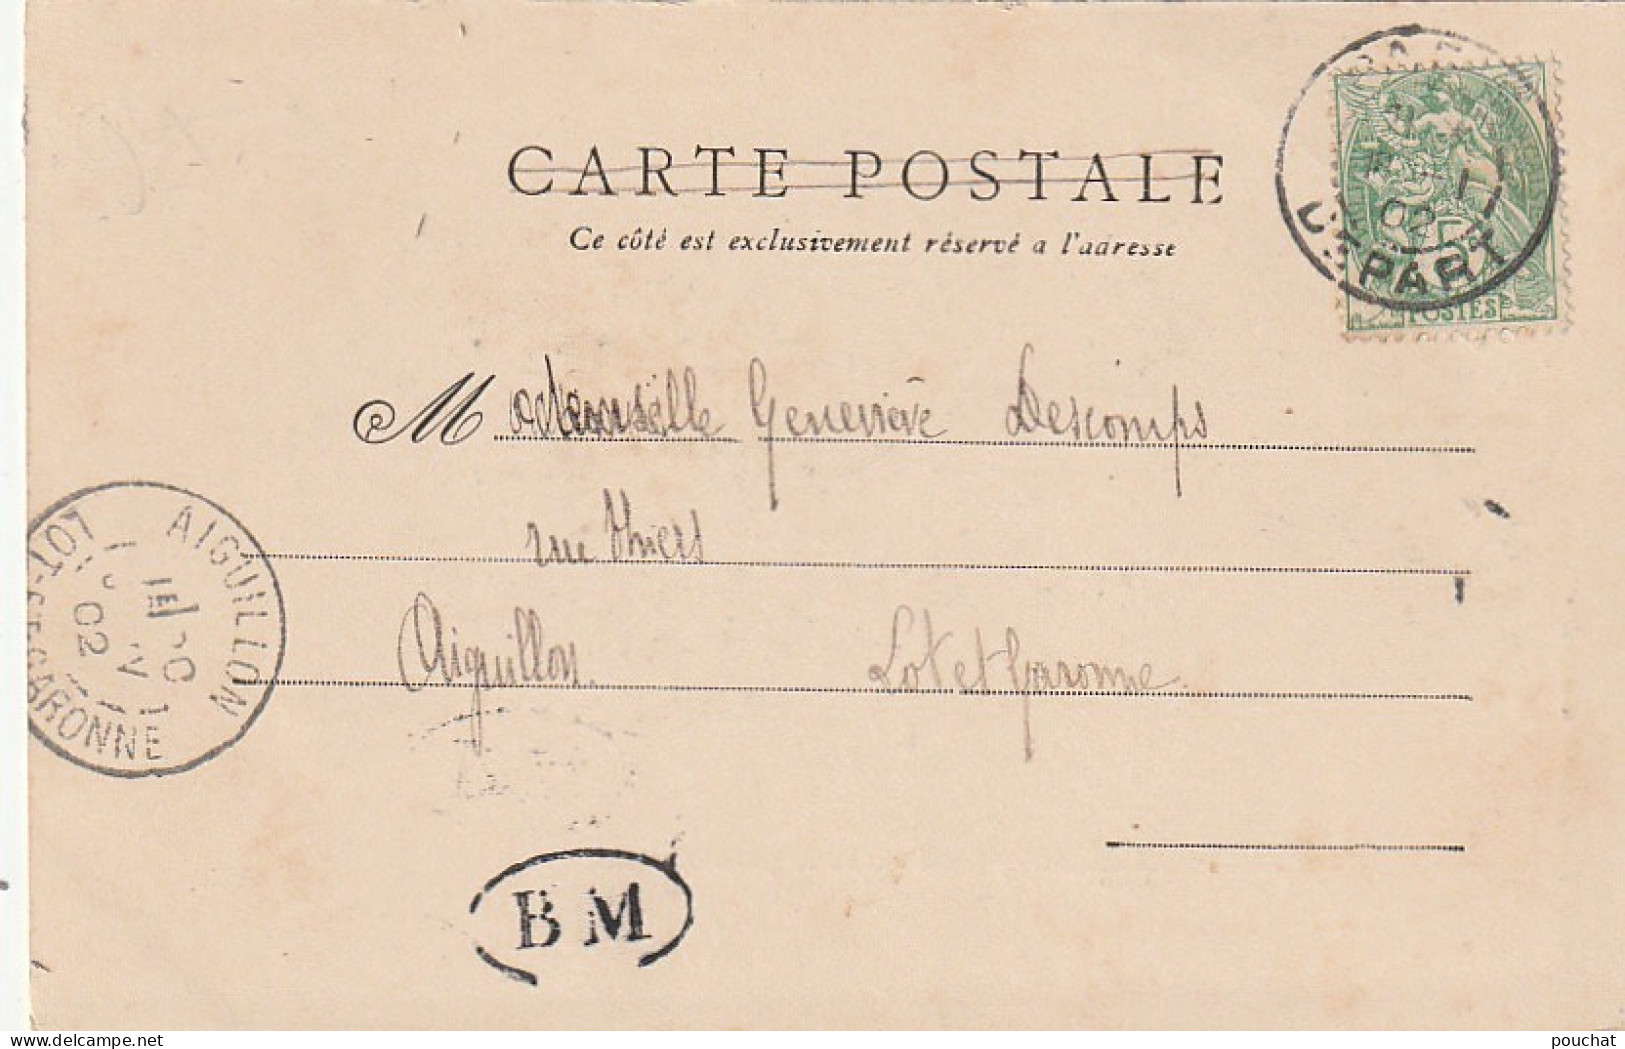 CARTE POSTALE
Ce côté est exclusivement réservé a l'adresse
DEPART
02
5
POSTES
Mademoiselle Geneviève Descomps
rue Thiers
Aiguillon. Lot et Garonne.
AIGUILLON
LOT-ET-GARONNE
02
B M
pouchat